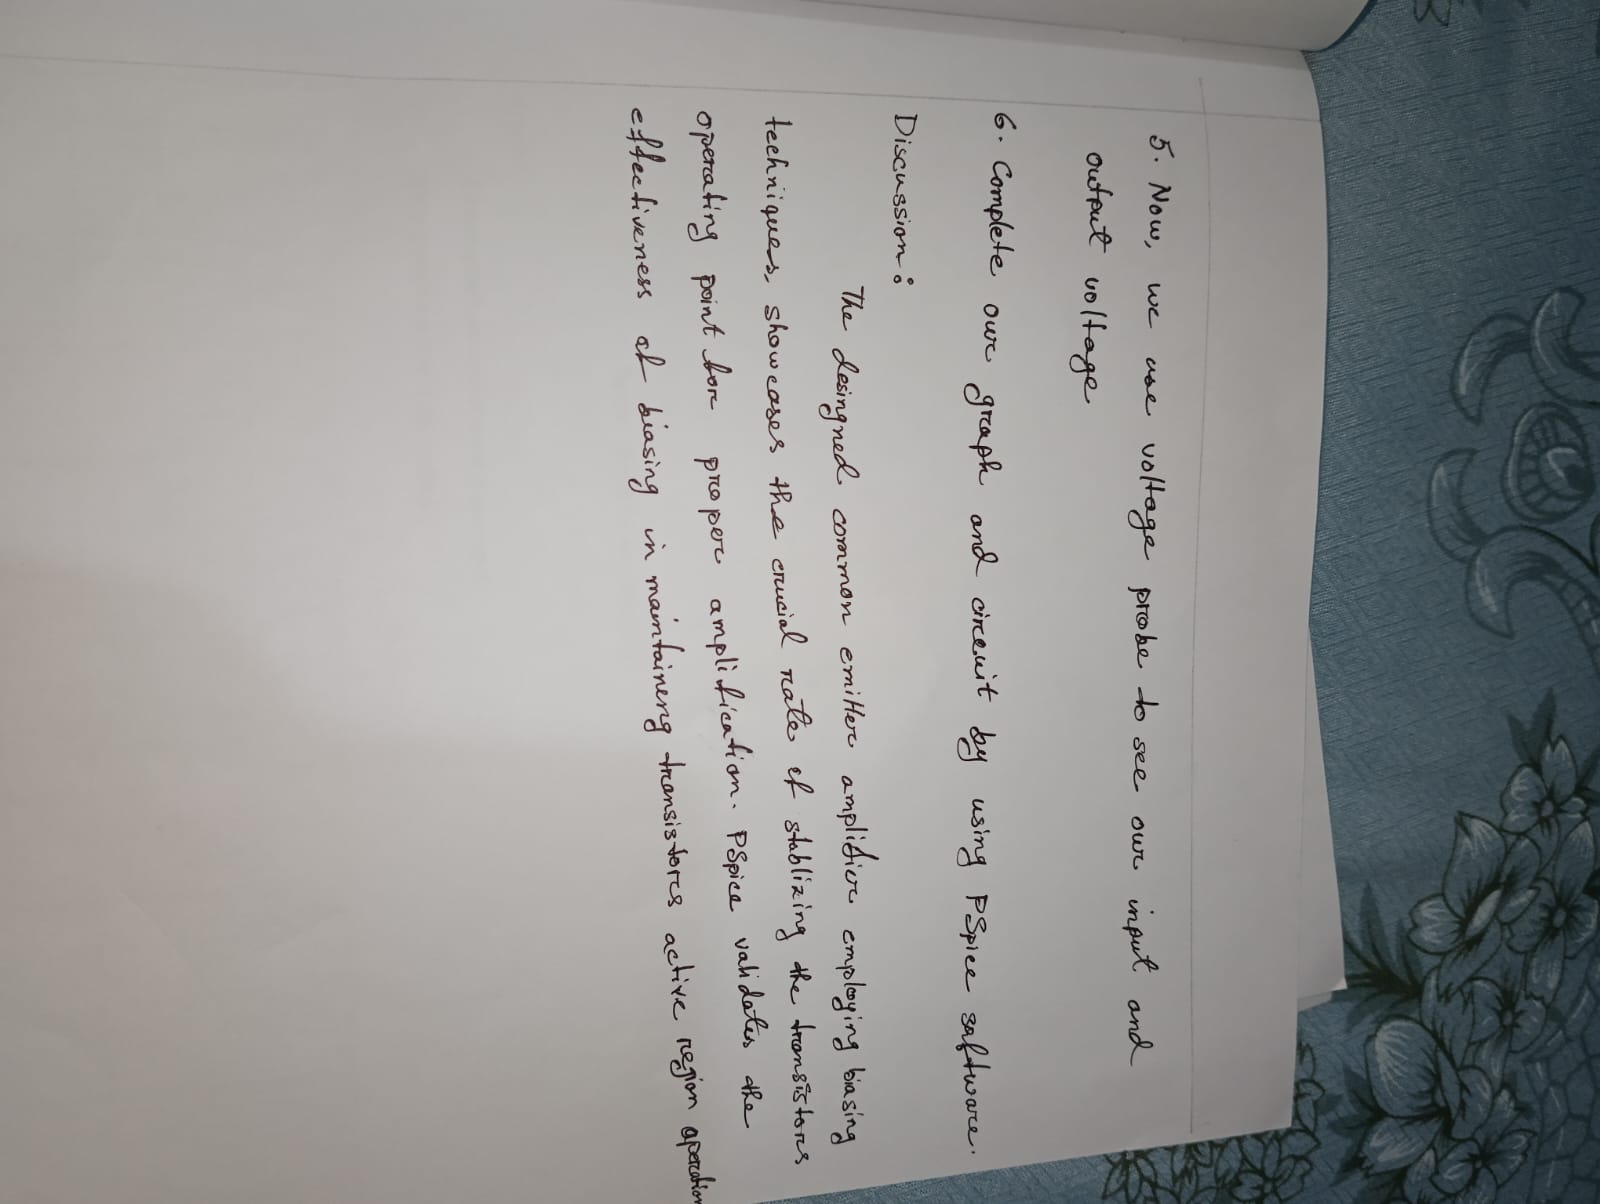 5. Now, we use voltage probe to see our input and
output voltage
6. Complete our graph and circuit by using PSpice software.
Discussion:
The desingned common emitter amplifier employing biasing
techniques, showcases the crucial rate of stablizing the transistors
operating point for proper amplification. PSpice validates the
effectiveness of biasing in maintaineng transistors active region operation